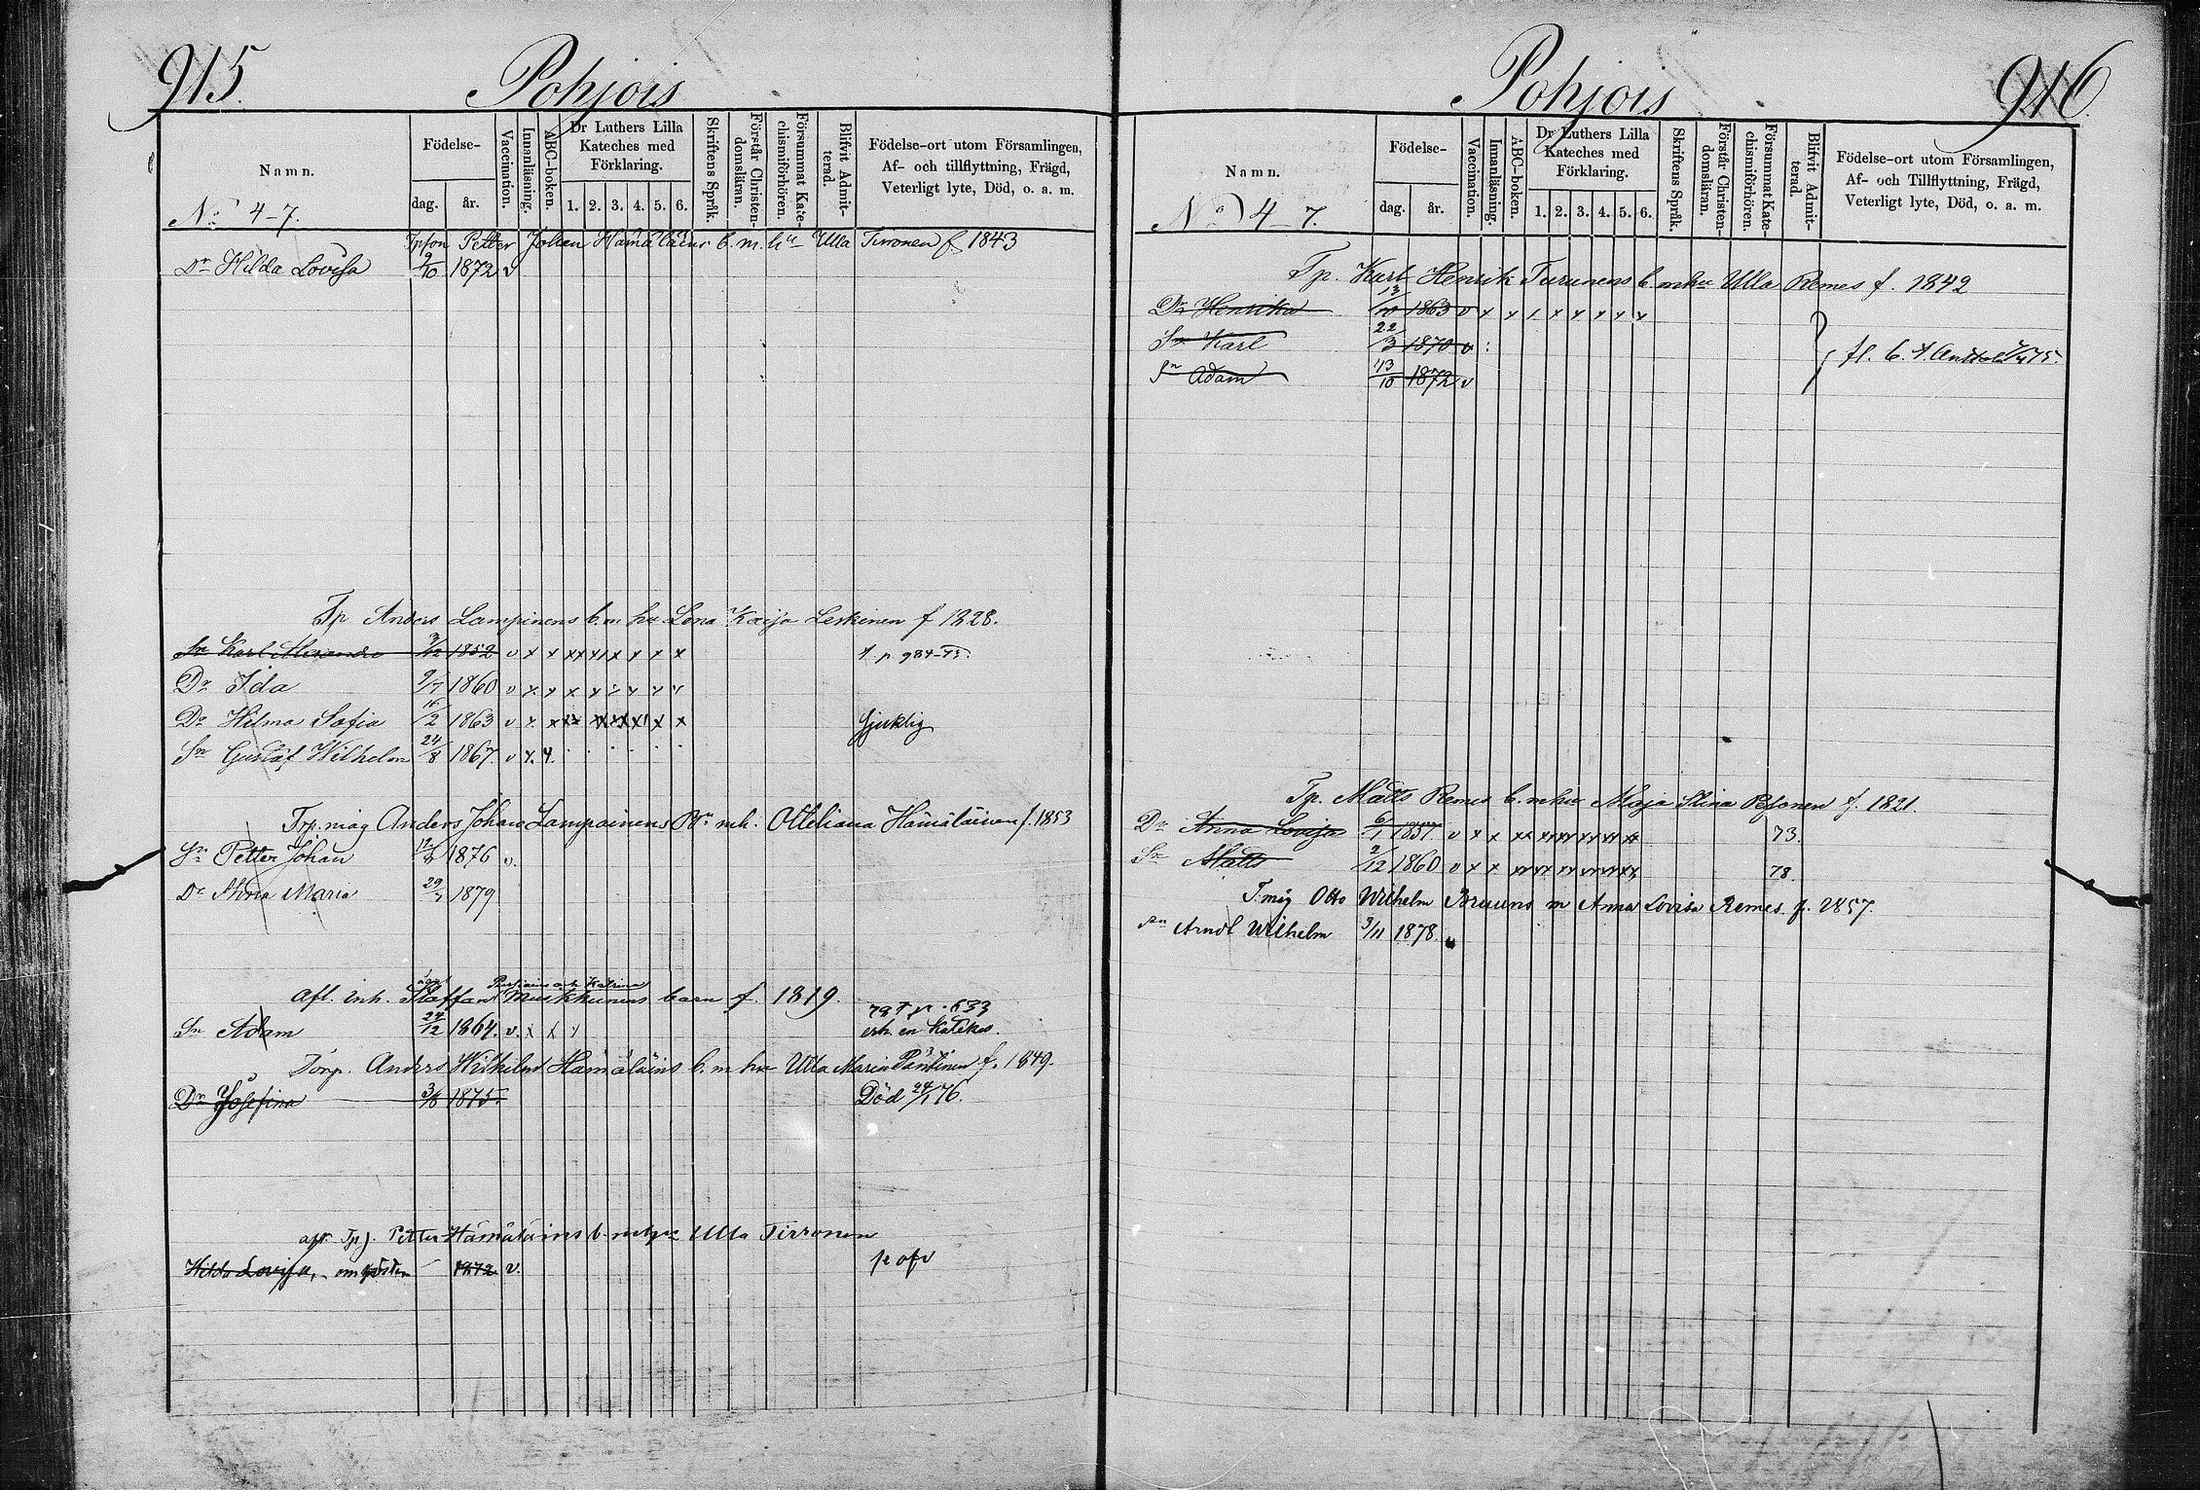 915.
Pohjois
Namn.
Födelse-
dag.
år.
Vaccination.
Innanläsning.
ABC-boken.
Dr Luthers Lilla
Kateches med
Förklaring.
1. 2. 3. 4. 5. 6.
Skriftens Språk.
Förstår Christen-
domsläran.
Försummat Kate-
chismiförhören.
Blifvit Admit-
terad.
Födelse-ort utom Församlingen,
Af- och tillflyttning, Frägd,
Veterligt lyte, Död, o. a. m.
No 4-7.
Petter Johan Hämäläins b. m. hu Ulla Tirronen f 1843
Dr Hilda Lovisa 9/10 1872 v
Tp Anders Lampinens b. m hu Lena Kaija Leskinen f 1828.
Sn Karl Alexander 3/12 1852 v x x xx x x x x x
Dr Ida 9/7 1860 v x x x x x x x
Dr Hilma Sofia 16/2 1863 v x Sjuklig
Sn Gustaf Wilhelm 24/8 1867 v x. x.
Trp. måg Anders Johan Lampainens Bn mh. Otteliana Hämäläinen f. 1853
Sn Petter Johan 1876 v.
Dr Anna Maria 1879
Afl. inh. Staffan Muikkunens barn f. 1819.
Sn Adam 24/12 1864. v. x x x
Torp. Anders Wilhelm Hämäläins b. m hu Ulla Maria f. 1849.
Dr Josefina 3/8 1875. Död 24/1 76.
Petter Hämäläins b. Ulla Tirronen
Hilda Lovisa, 1872 v.
916.
Pohjois
Namn.
Födelse-
dag.
år.
Vaccination.
Innanläsning.
ABC-boken.
Dr Luthers Lilla
Kateches med
Förklaring.
1. 2. 3. 4. 5. 6.
Skriftens Språk.
Förstår Christen-
domsläran.
Försummat Kate-
chismiförhören.
Blifvit Admit-
terad.
Födelse-ort utom Församlingen,
Af- och Tillflyttning, Frägd,
Veterligt lyte, Död, o. a. m.
No 4-7.
Tp. Karl Henrik Turunens b. m hu Ulla Remes f. 1842
Dr Henrika 13/10 1863 v x x x x x x x x
Sn Karl 22/3 1870 v
Sn Adam 13/10 1872 v
Tp. Matts Remes b. m hu Maja Stina Pesonen f. 1821.
Dr Anna Lovisa 6/1 1857. v x x xx xx xx xx xx xx 73.
Sn Matts 2/12 1860 v x x xx xx xx xx xx xx 78.
T. måg Otto Wilhelm Bruuns m Anna Lovisa Remes. f. 1857.
Sn Arndt Wilhelm 3/11 1878.